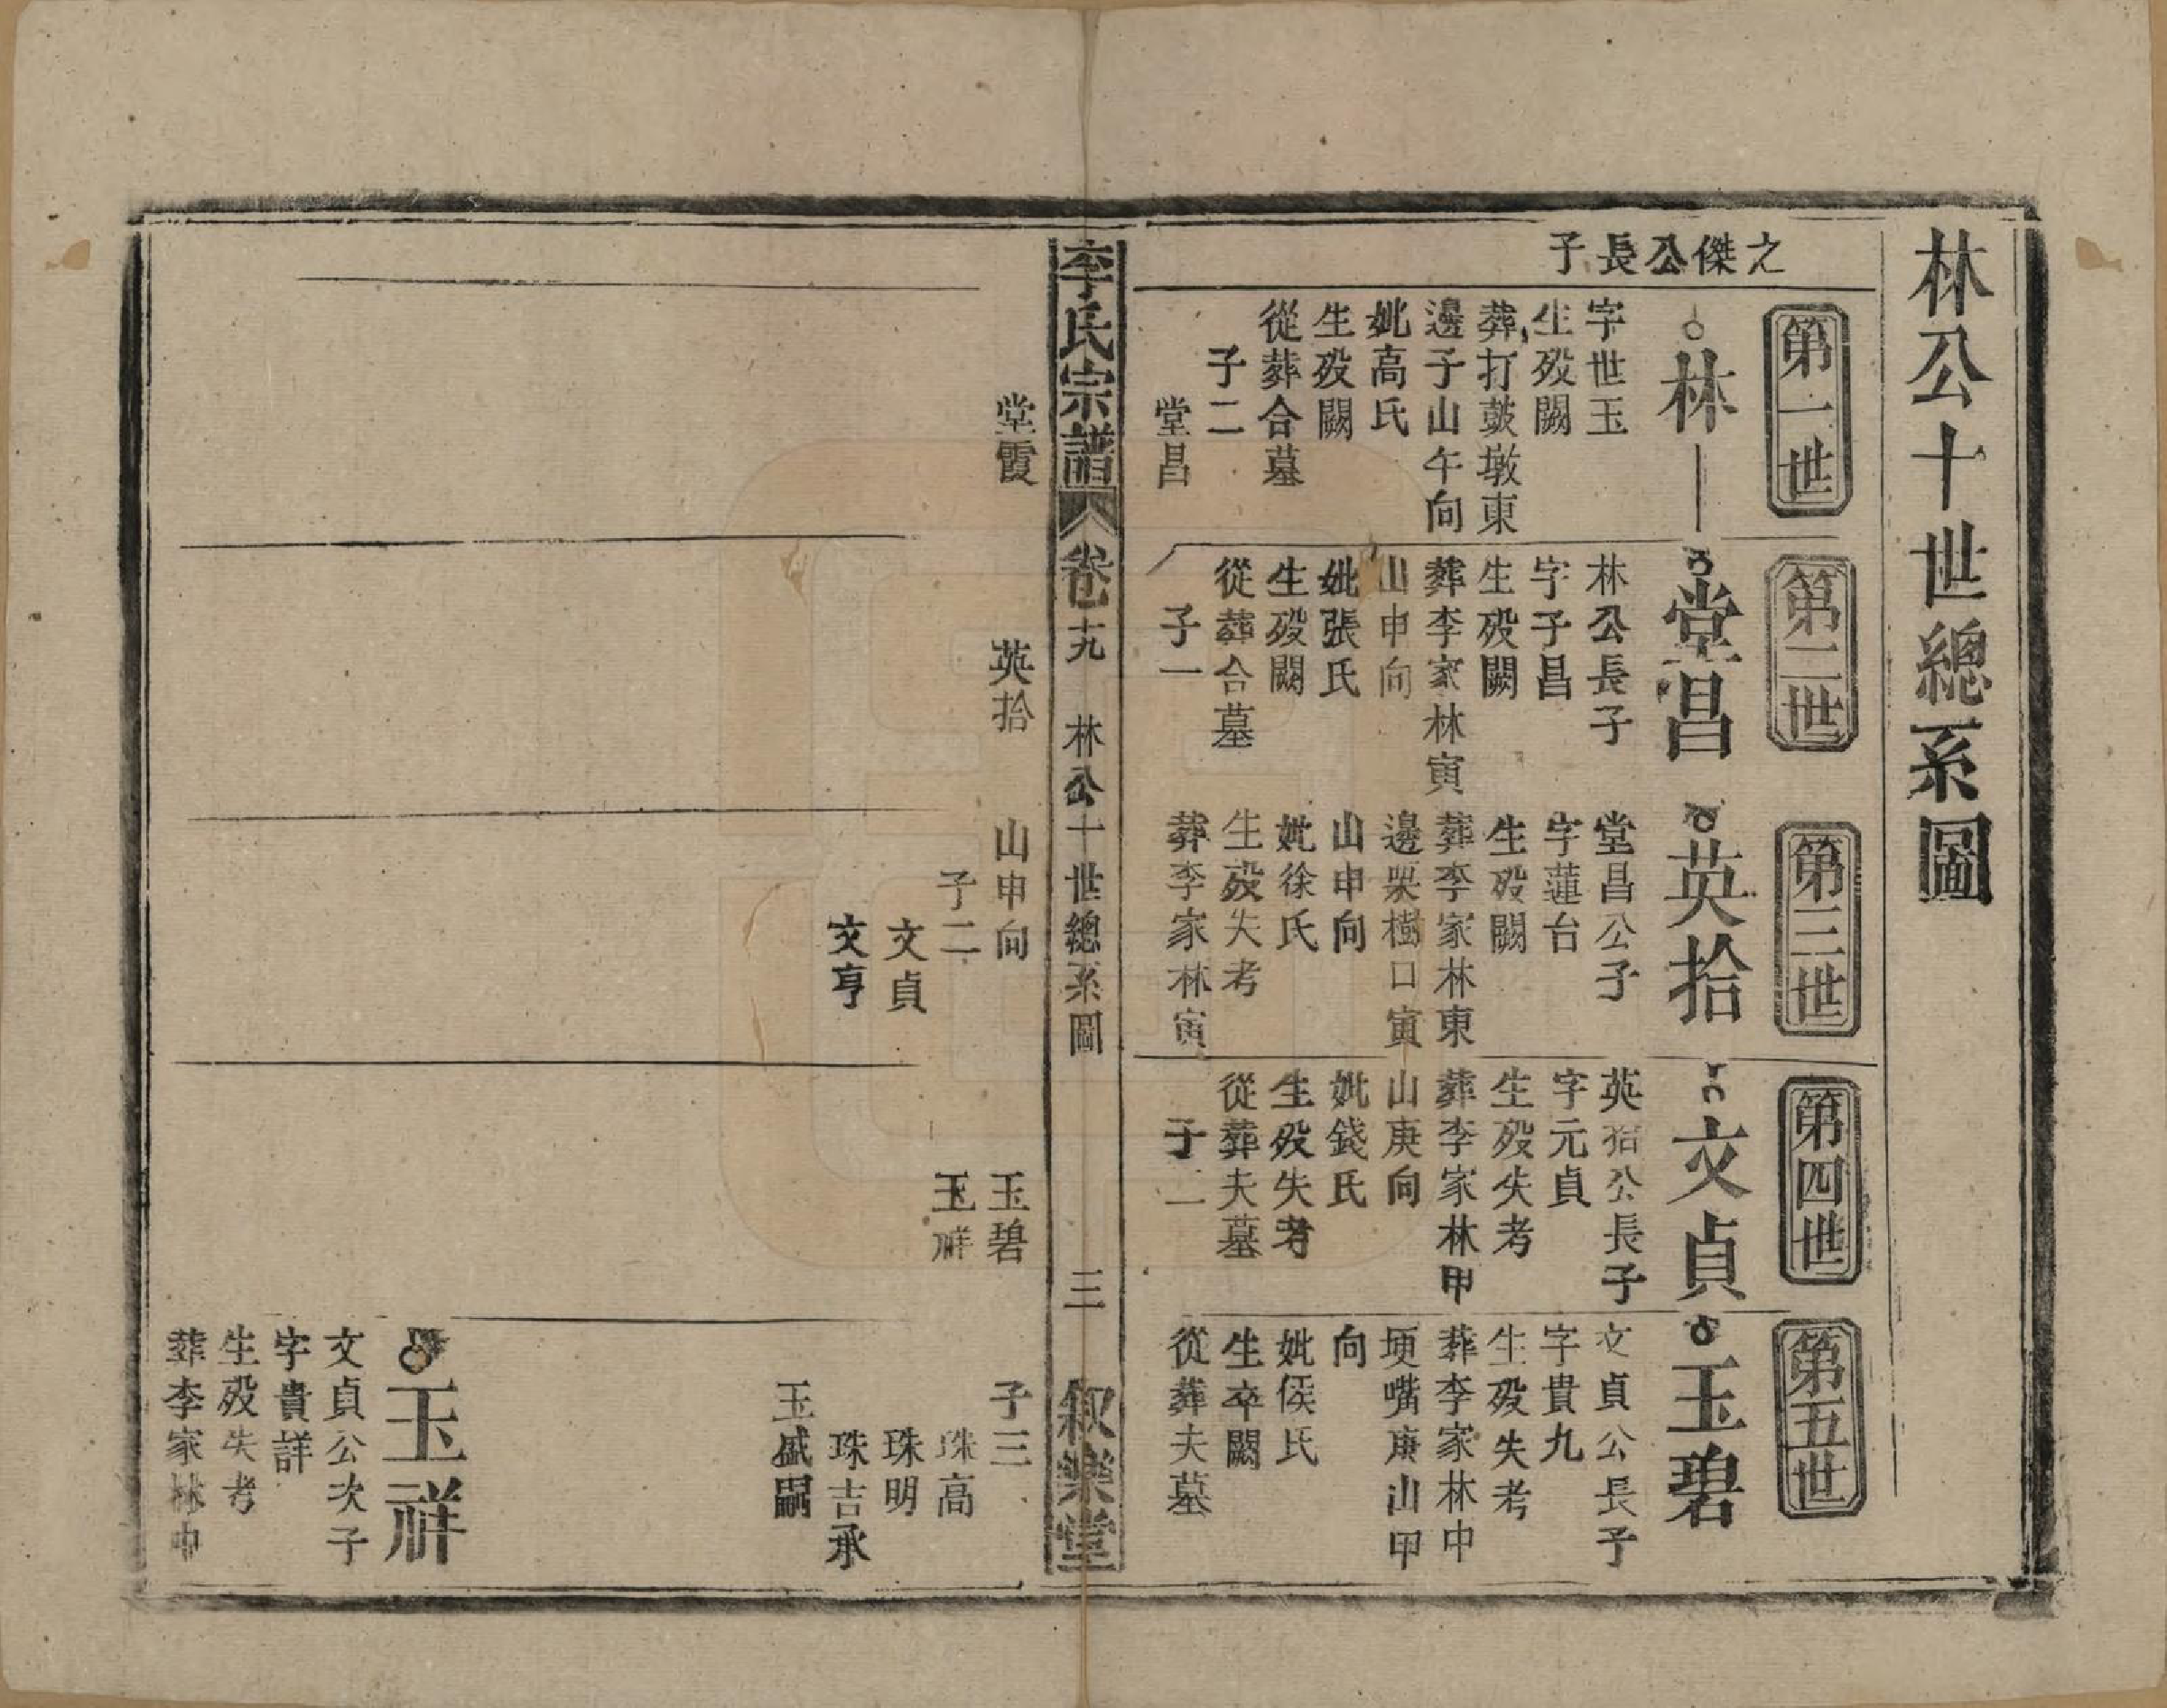 林公十世總系圖
之傑公長子
第一世
林
字世玉
生殁闕
葬打鼓墩東
邊子山午向
妣高氏
生殁闕
從葬合墓
子二
堂昌
堂霞
第二世
堂昌
林公長子
字子昌
生殁闕
葬李家林寅
山申向
妣張氏
生殁闕
從葬合墓
子一
英拾
第三世
英拾
堂昌公子
字蓮台
生殁闕
葬李家林東
邊栗樹口寅
山申向
妣徐氏
生殁失考
葬李家林寅
山申向
子二
文貞
文亨
第四世
文貞
英拾公長子
字元貞
生殁失考
葬李家林甲
山庚向
妣錢氏
生殁失考
從葬夫墓
子二
玉碧
玉祥
第五世
玉碧
文貞公長子
字貴九
生殁失考
葬李家林中
埂嘴庚山甲
向
妣侯氏
生卒闕
從葬夫墓
子三
珠高
珠明
珠吉承
玉盛嗣
玉祥
文貞公次子
字貴詳
生殁失考
葬李家林中
李氏宗譜
卷十九
林公十世總系圖
三
敘樂堂